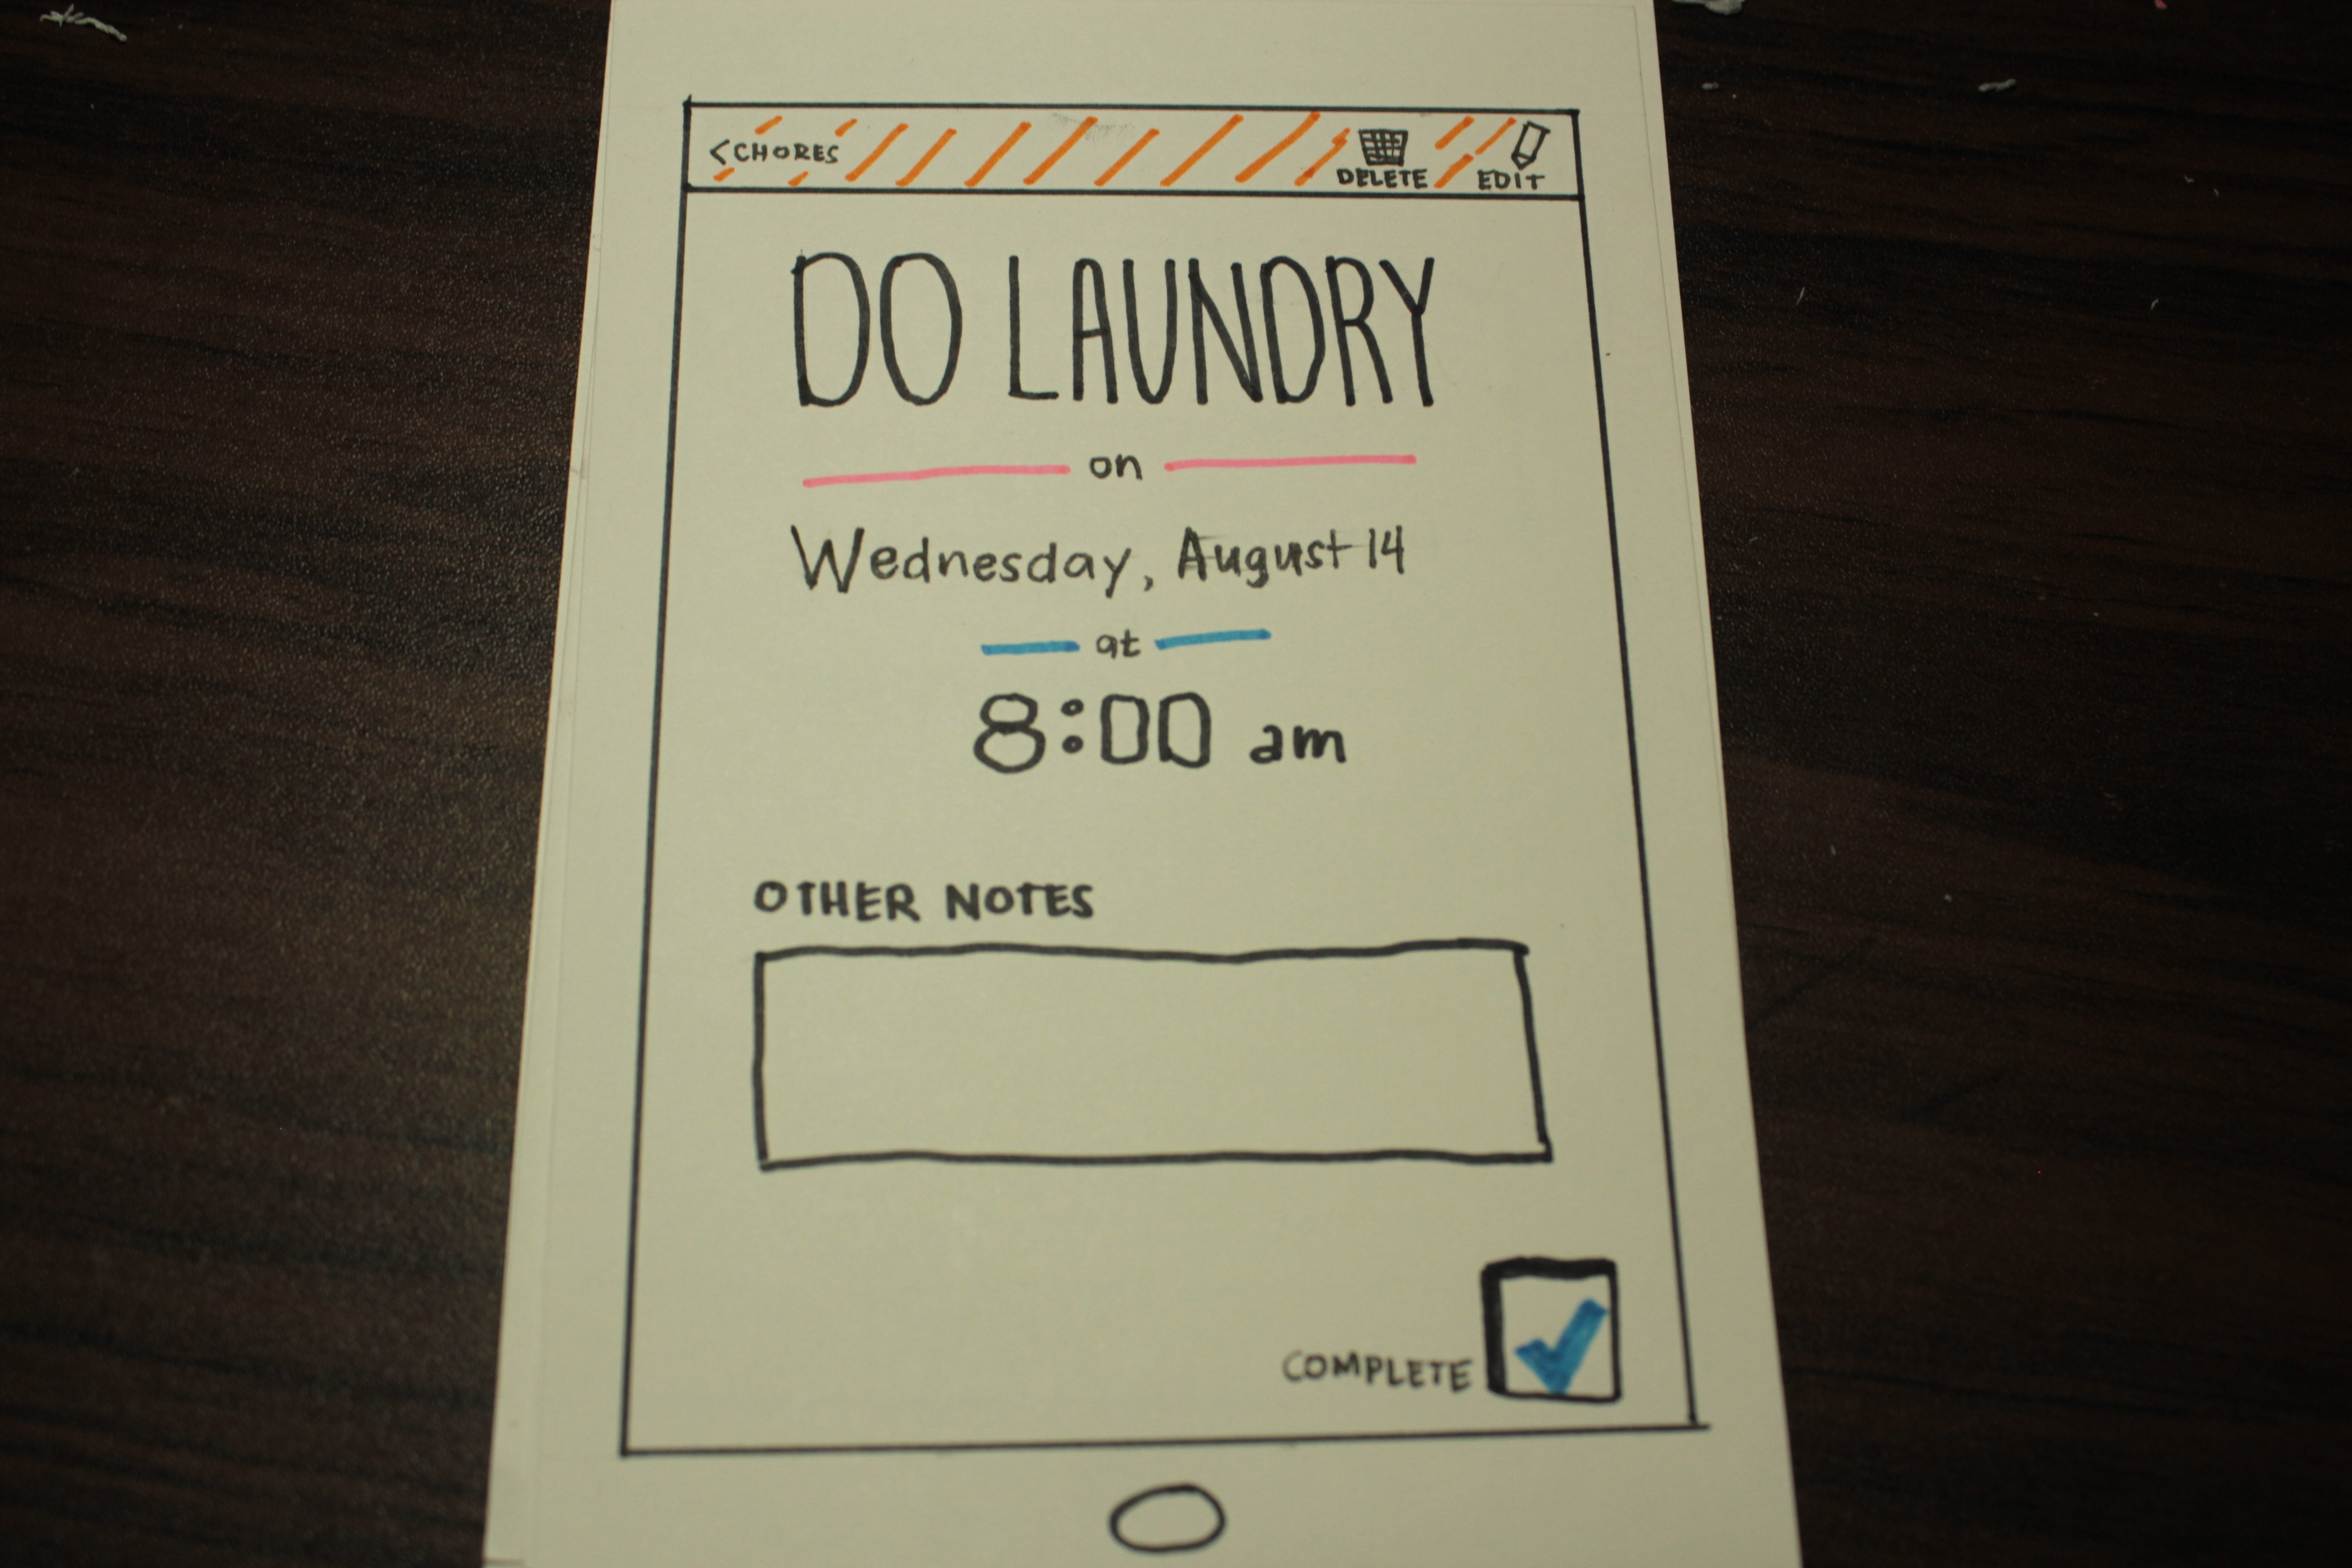 < CHORES DELETE EDIT
DO LAUNDRY
on
Wednesday, August 14
at
8:00 am
OTHER NOTES
COMPLETE